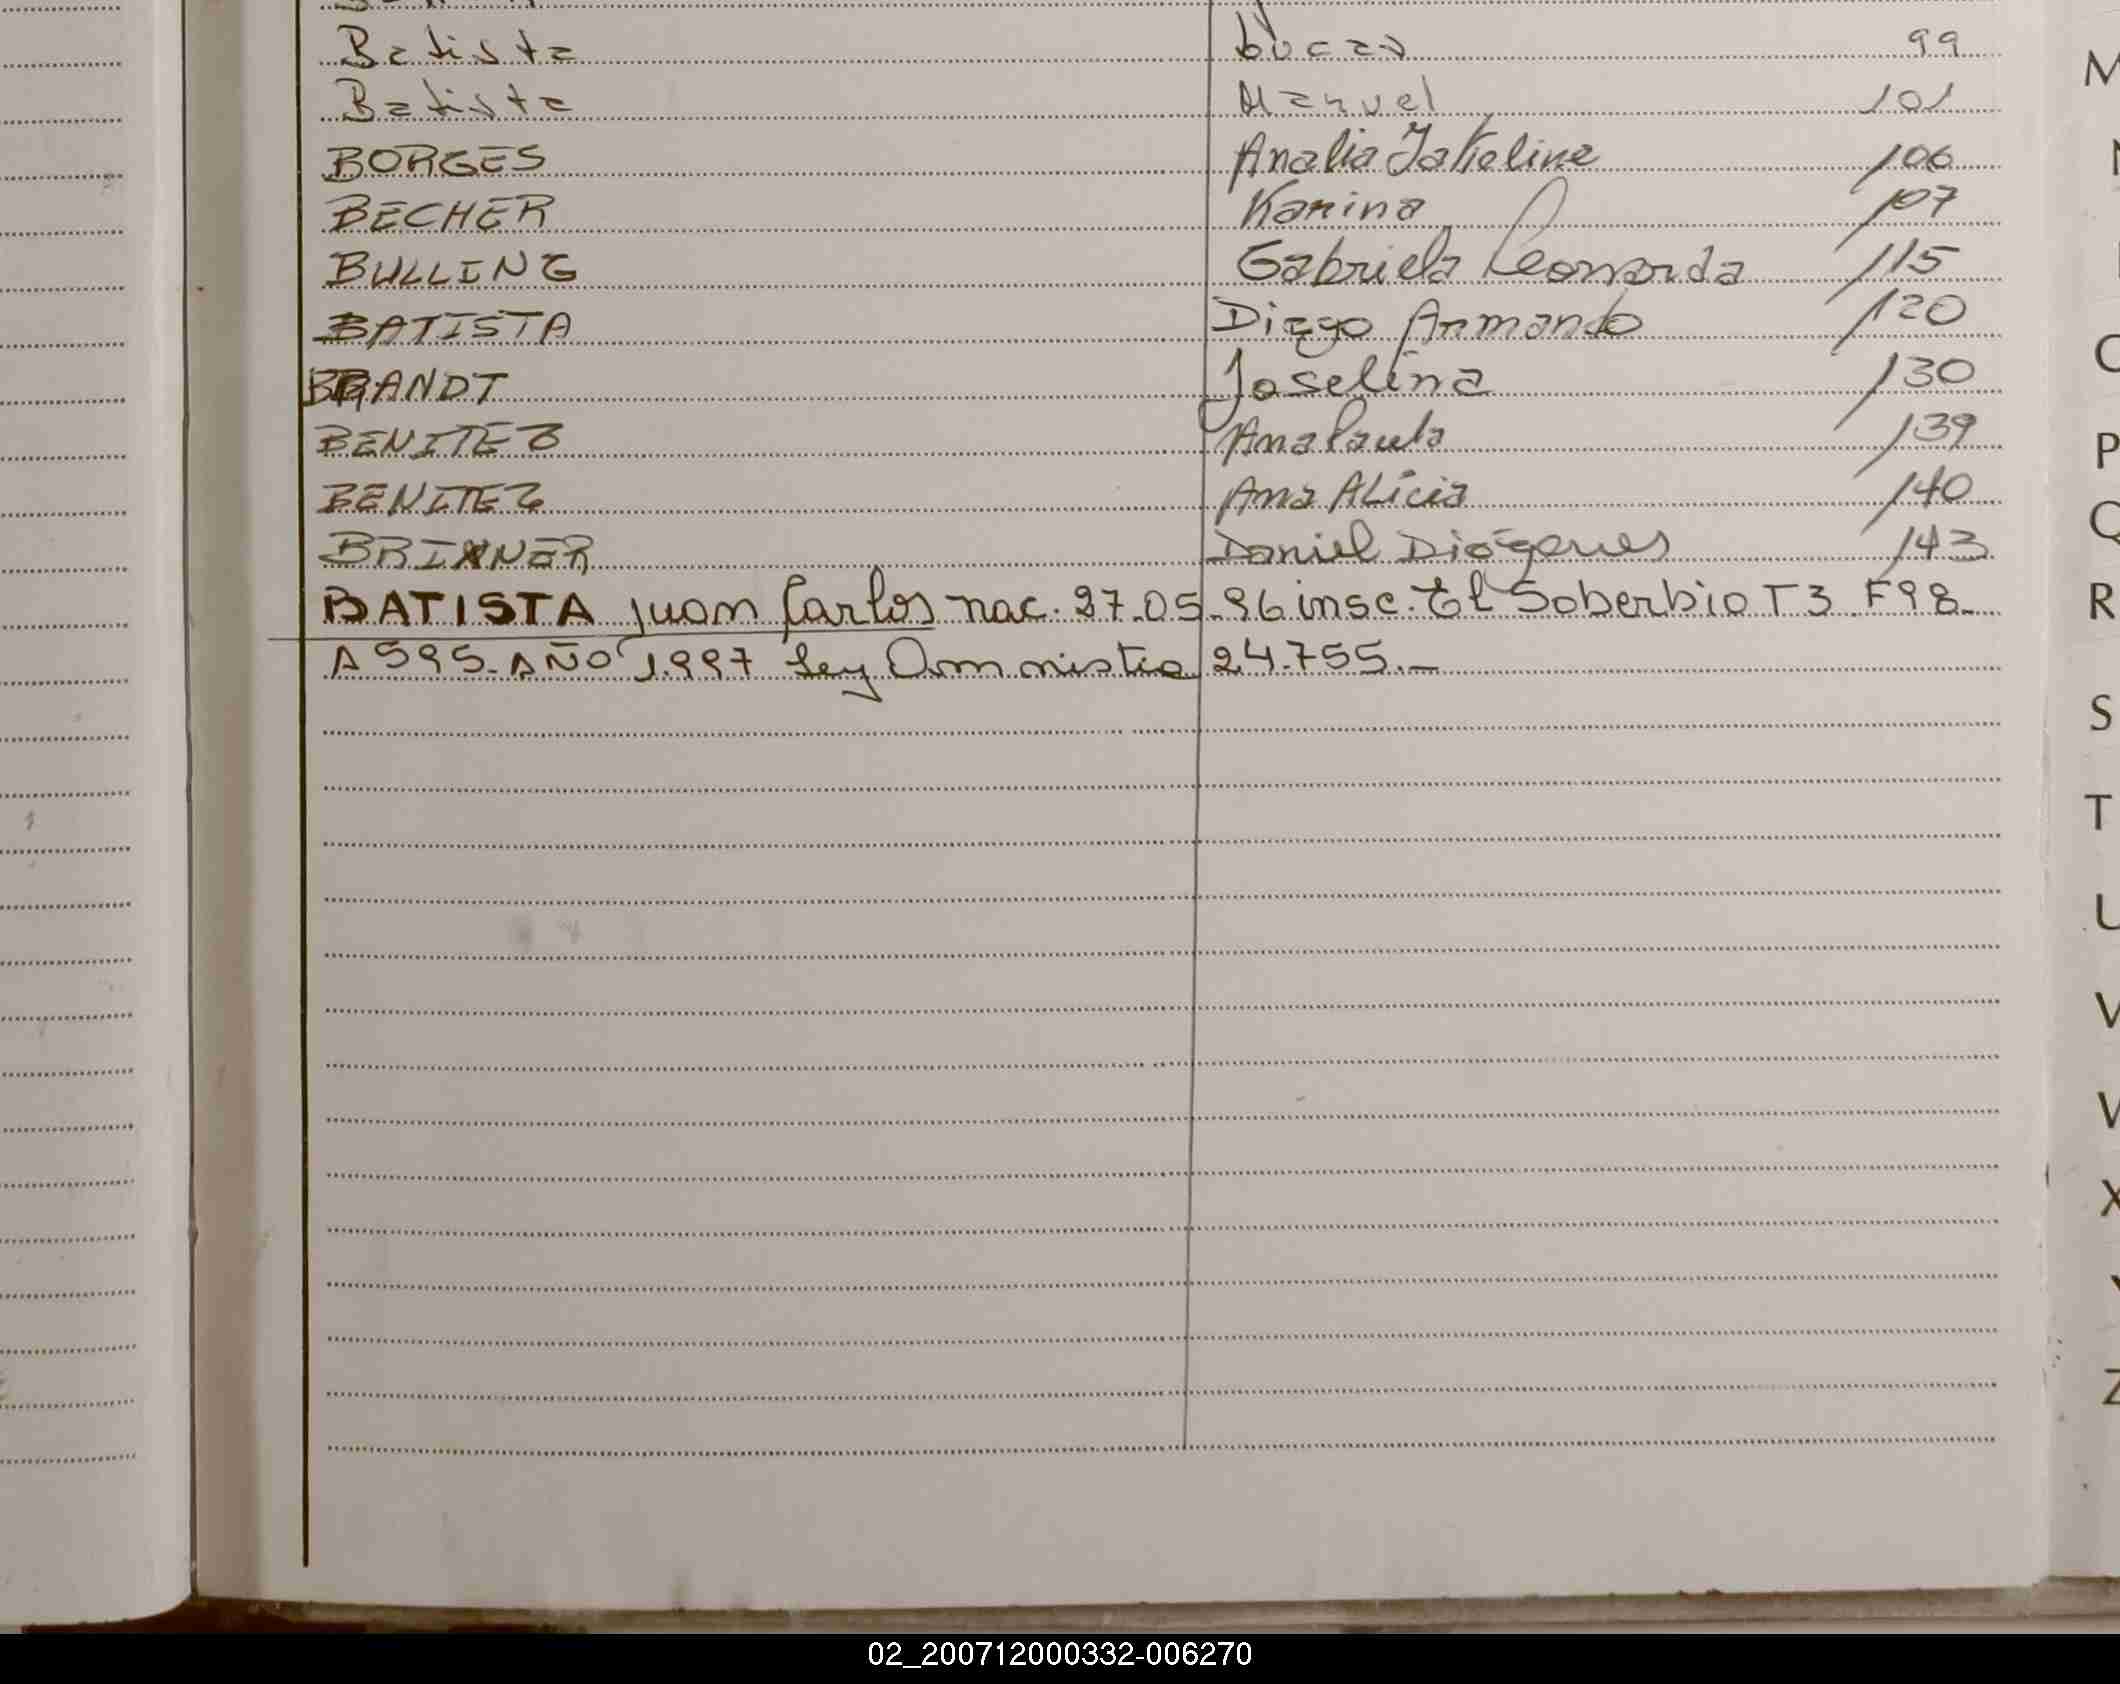 Batista Lucas 99
Batista Manuel 101
BORGES Analia Jakeline 106
BECHER Karina 107
BULLING Gabriela Leonarda 115
BATISTA Diego Armando 120
BRANDT Joselina 130
BENITEZ Ana Paula 139
BENITEZ Ana Alicia 140
BRIXNER Daniel Diógenes 143
BATISTA Juan Carlos nac. 27.05.96 insc. El Soberbio T3 F98.
A 595. AÑO 1.997 Ley Amnistia 24.755.-
M
N
O
P
Q
R
S
T
U
V
W
X
Y
Z
02_200712000332-006270